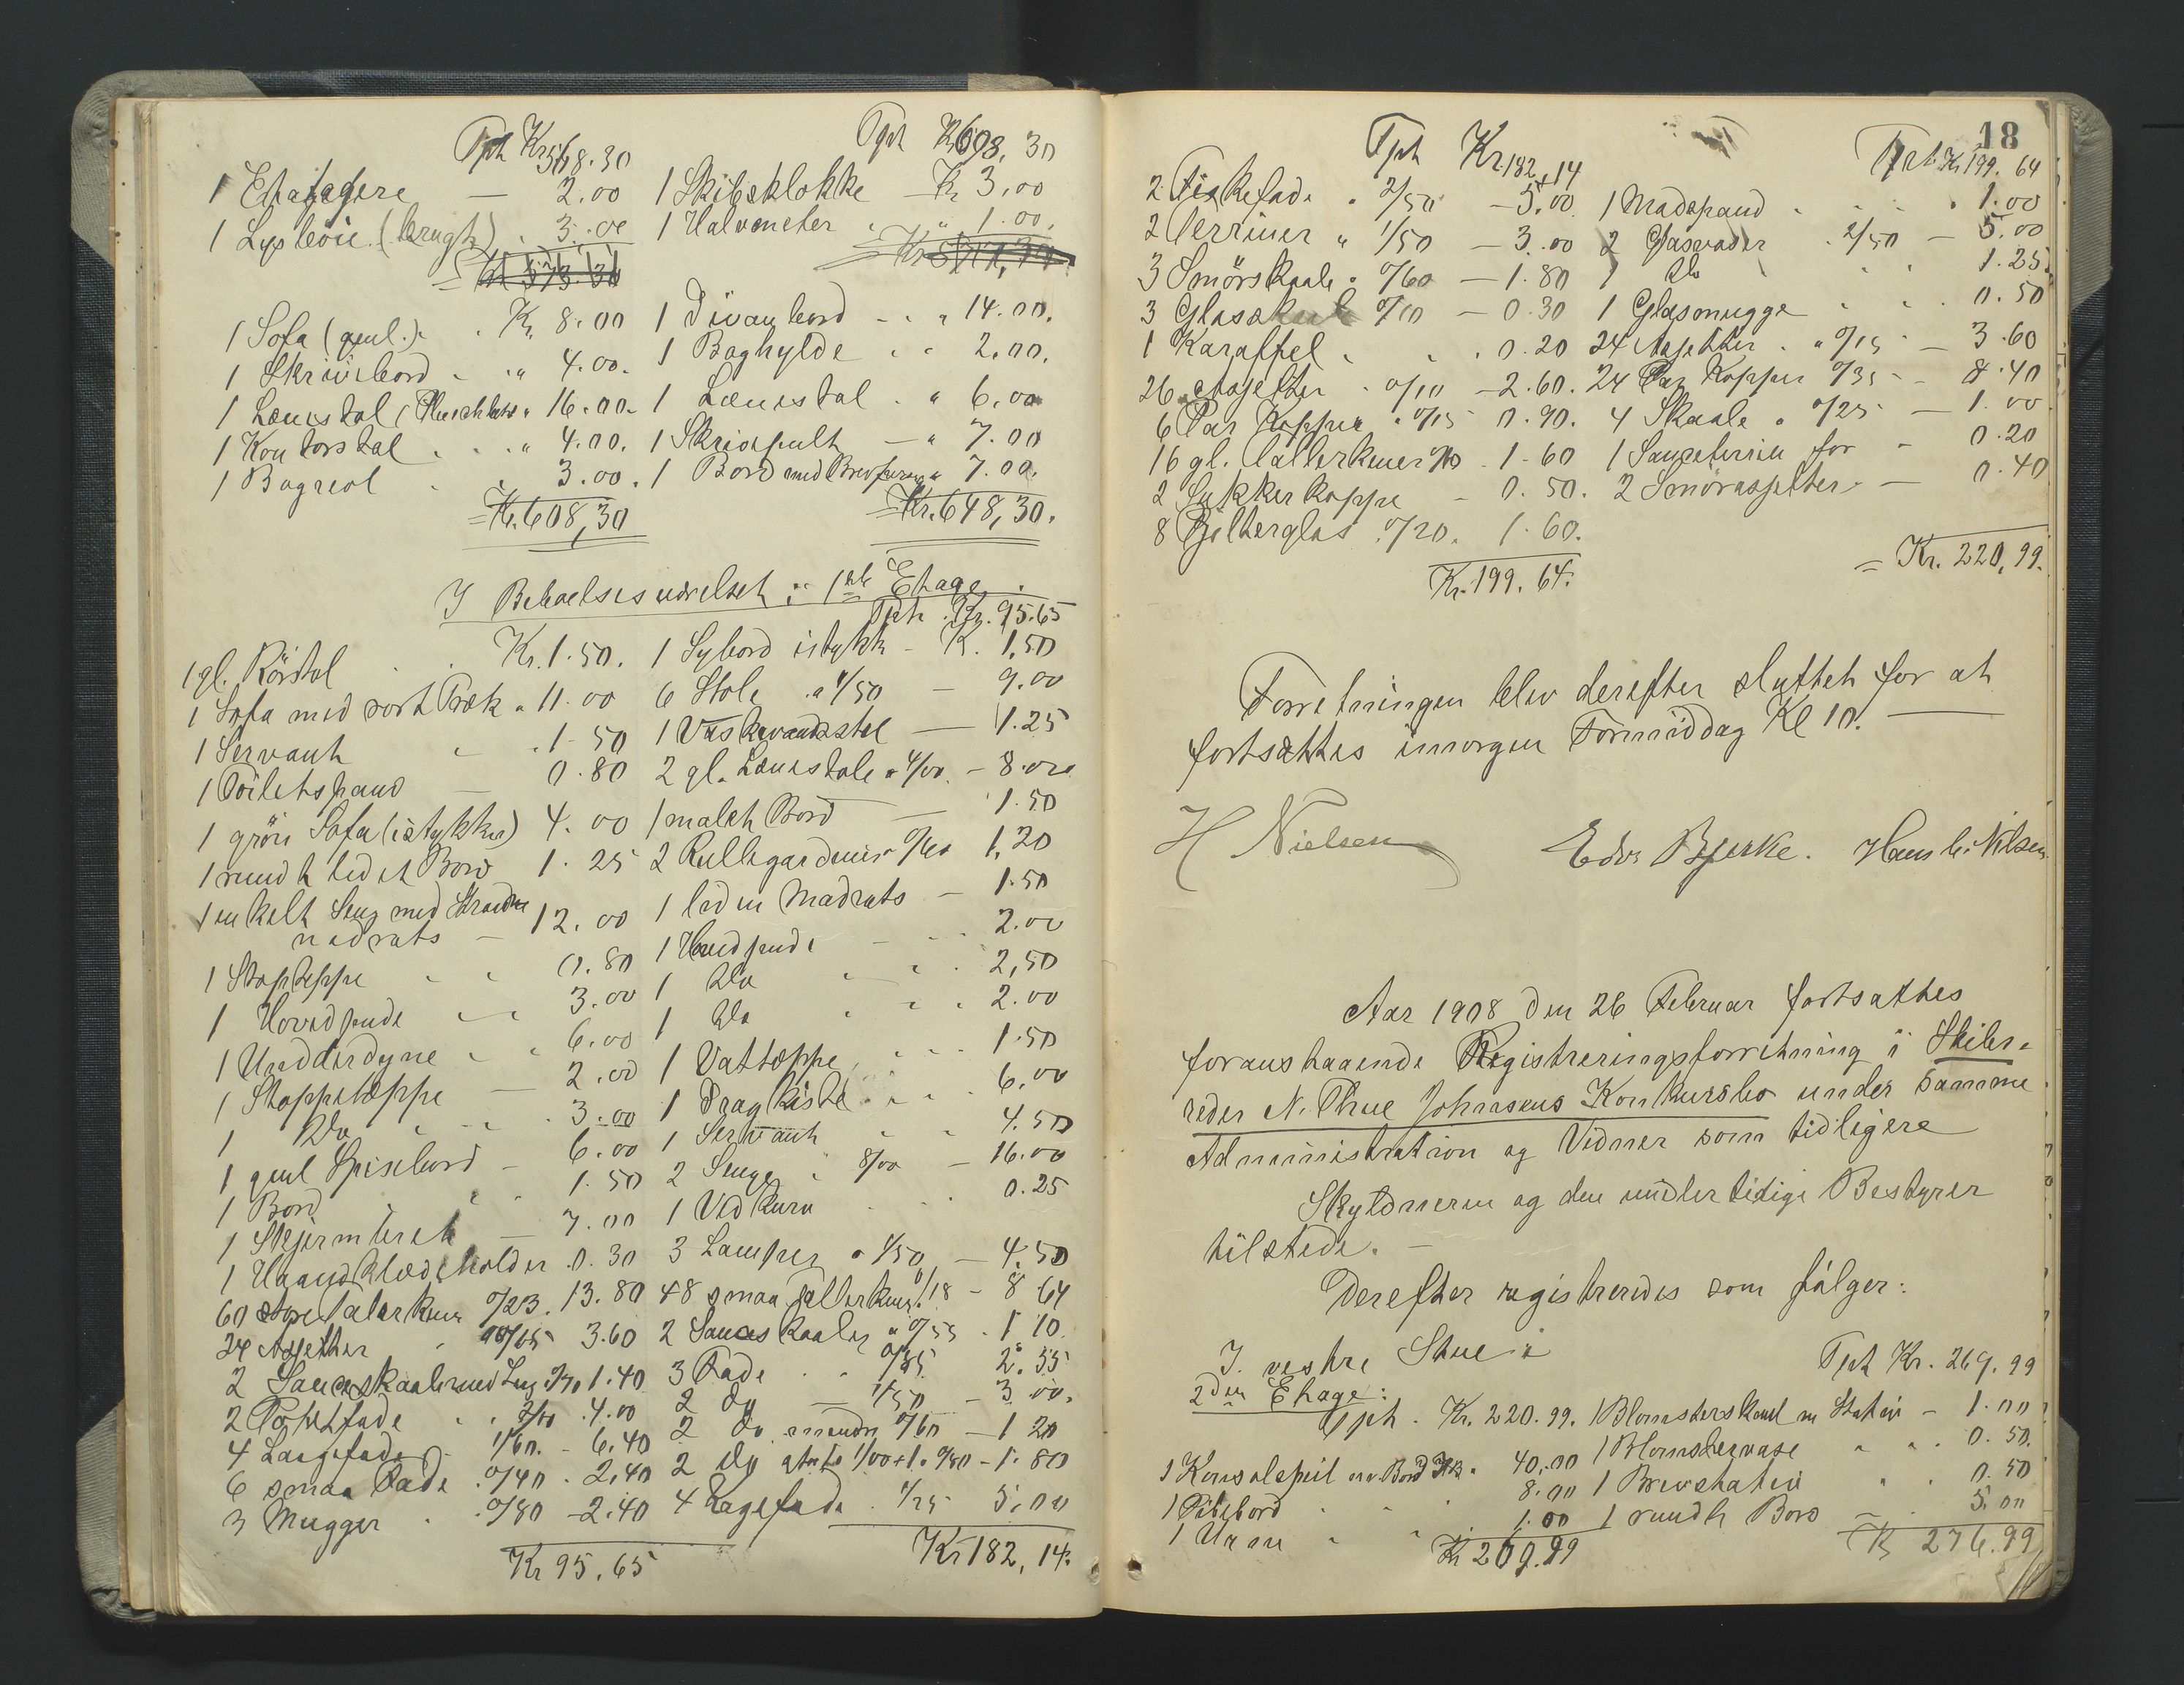 Tpt Kr. 568.30
1 Etafagere — 2.00
1 Lysleöie (brugt) " 3.00
= Kr 573.30
1 Sofa (gml.) " Kr 8.00
1 Skrivebord " " 4.00.
1 Lænestol (Pluschbetr. " 16.00.
1 Kontorstol " 4.00.
1 Bogreol " 3.00.
= Kr. 608,30
Tpt Kr 608,30
1 Skibsklokke — Kr 3.00
1 Halvmeter " " 1.00.
1 Divanbord - " " 14.00.
1 Boghylde " " 2.00.
1 Lænestol " " 6.00
1 Skrivepult — " 7.00
1 Bord med Brevpresse " 7.00.
= Kr. 648,30.
I Beboelsesværelset i 1ste Etage:
1 gl. Rörstol Kr. 1.50.
1 Sofa med sort Træk " 11.00
1 Servant " 1.50
1 Toiletspand — 0.80
1 grön Sofa (istykker) 4.00
1 rundt lidet Bord 1.25
1 enkelt Seng med
madrats — 12.00
1 Stoptæppe " " 0.80
1 Hovedpude " " 3.00
1 Underdyne " " 6.00
1 Stoppetæppe — 2.00
1 Do " " 3.00
1 gml Spisebord - 6.00
1 Bord " " 1.50
1 Skjermbret — 7.00
1 Haandklædeholder 0.30
60 store Talerkener 0/23. 13.80
24 Asjetter 0/15 3.60
2 Sauceskaaler med 0/70 1.40
2 Postetfade " " 2/00 4.00
4 Langefade 1/60. - 6.40
6 smaa Fade 0/40 . 2,40
3 Mugger " 0/80 - 2.40
Kr 95.65
Tpt. Kr. 95.65
1 Sybord istykk - Kr. 1,50
6 Stole " a 1/50 — 9.00
1 Vaskevandsstel — 1.25
2 gl. Lænestole a 4/00. - 8.00
1 malet Bord — 1.50
2 Rullegardiner 0/60 1,20
1 liden Madrats - 1.50
1 Hovedpude - - - 2.00
1 Do " " 2,50
1 Do " " " 2.00
1 Vattæppe " " " 1.50
1 Dragkiste " " " 6.00
1 Servant " " 4.50
2 Senge " 8/00 — 16.00
1 Vedkurv " " 0.25
3 Lamper a 1/50 — 4.50
48 smaa Tallerkener 0/18 - 8 64
2 Sauceskaaler a 0/55 . 1 10.
3 Fade " " 0/85 2.55
2 Do — 1/50 — 3.00.
2 Do mindre 0/60 — 1 20
2 Do 1/00+1 a 0/80 - 1.80
4 Kagefade . 1/25 5.00
Kr 182,14.
18
Tpt Kr. 182,14
2 Fiskefade " 2/50 — 5.00
2 Terriner " 1/50 — 3.00
3 Smörskaale " 0/60 — 1.80
3 Glasskaale 0/10 — 0.30
1 Karaffel " " . 0.20
26 Asjetter " 0/10 — 2.60.
6 Par Kopper " 0/15 0.90.
16 gl. Tallerkener 0/10 . 1.60
2 Sukkerkoppe - 0.50.
8 Pjelterglas . 0/20. 1.60.
Kr. 199.64.
Tpt. Kr. 199.64
1 Madspand " " " 1.00
2 Glasvaser . 2/50 — 5.00
1 do " " 1.25
1 Glasmugge " " . 0.50
24 Asjetter " a 0/15 — 3.60
24 Par Kopper 0/35 - 8.40
4 Skaale a 0/25 — 1.00
1 Sauceterrin for - 0.20
2 Smörasjetter — 0.40
= Kr. 220,99.
Forretningen blev derefter sluttet for at
fortsættes imorgen Formiddag Kl 10. —
H Nielsen Edv. Bjerke. Hans C. Nilsen
Aar 1908 den 26 Februar fortsattes
foranstaaende Registreringsforretning i Skibs-
reder N. Thue Johnsens Konkursbo under samme
Administration og Vidner som tidligere
Skyldneren og den midlertidige Bestyrer
tilstede. —
Derefter registreredes som fölger:
I vestre Stue i
2den Etage:
Tpt. Kr. 220.99.
1 Konsolspeil m. Bord Kr. 40,00
1 Pibebord " " 8.00
1 Urne " " 1.00
Kr 269.99
Tpt Kr. 269.99
1 Blomsterskaal m Stativ - 1.00
1 Blomstervase " " . 0.50.
1 Brevstativ " " 0.50
1 rundt Bord — 5.00
Kr 276.99